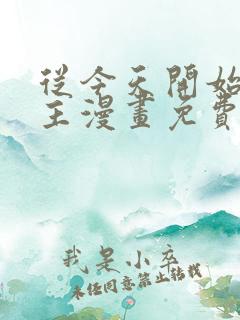 從今天開始
主漫畫免費
我是小卒
未经同意禁止转载